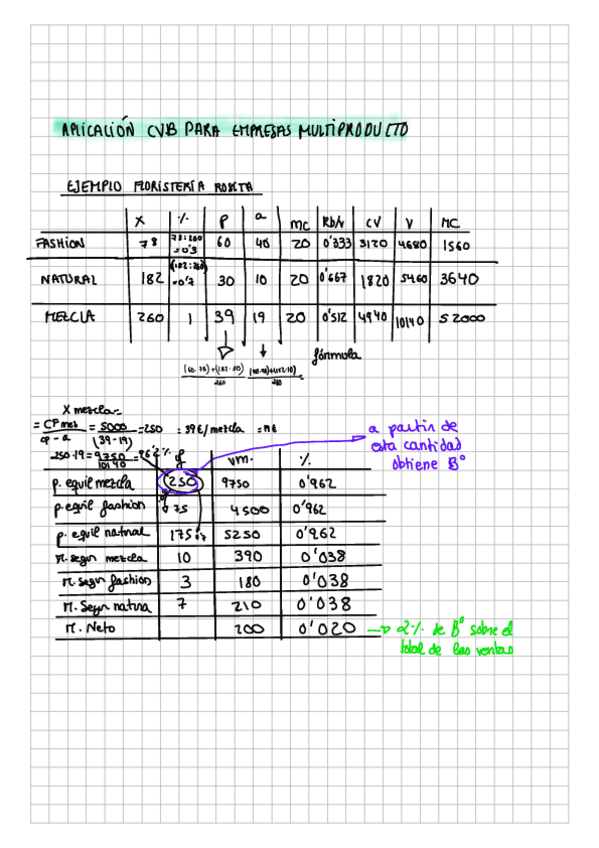 APLICACIÓN CVB PARA EMPRESAS MULTIPRODUCTO
EJEMPLO FLORISTERÍA ROSITA
X % P a mc Rb/v CV V MC
FASHION 78 78:260 =0'3 60 40 20 0'333 3120 4680 1560
NATURAL 182 (182:260) =0'7 30 10 20 0'667 1820 5460 3640
MEZCLA 260 1 39 19 20 0'512 4940 10140 52000
(60·78)+(182·30) / 260 (40·78)+(182·10) / 260 fórmula
X mezcla
= CF mez / p - a = 5000 / (39-19) = 250 = 39€/mezcla = 19€
250·19 = 9750 / 10140 = 96'2%
a partir de
esta cantidad
obtiene Bº
f vm. %
p. equil mezcla 250 9750 0'962
p. equil fashion 75 4500 0'962
p. equil natural 175 5250 0'962
M. segur mezcla 10 390 0'038
M. segur fashion 3 180 0'038
M. Segur natura 7 210 0'038
M. Neto 200 0'020 → 2% de Bº sobre el
total de las ventas